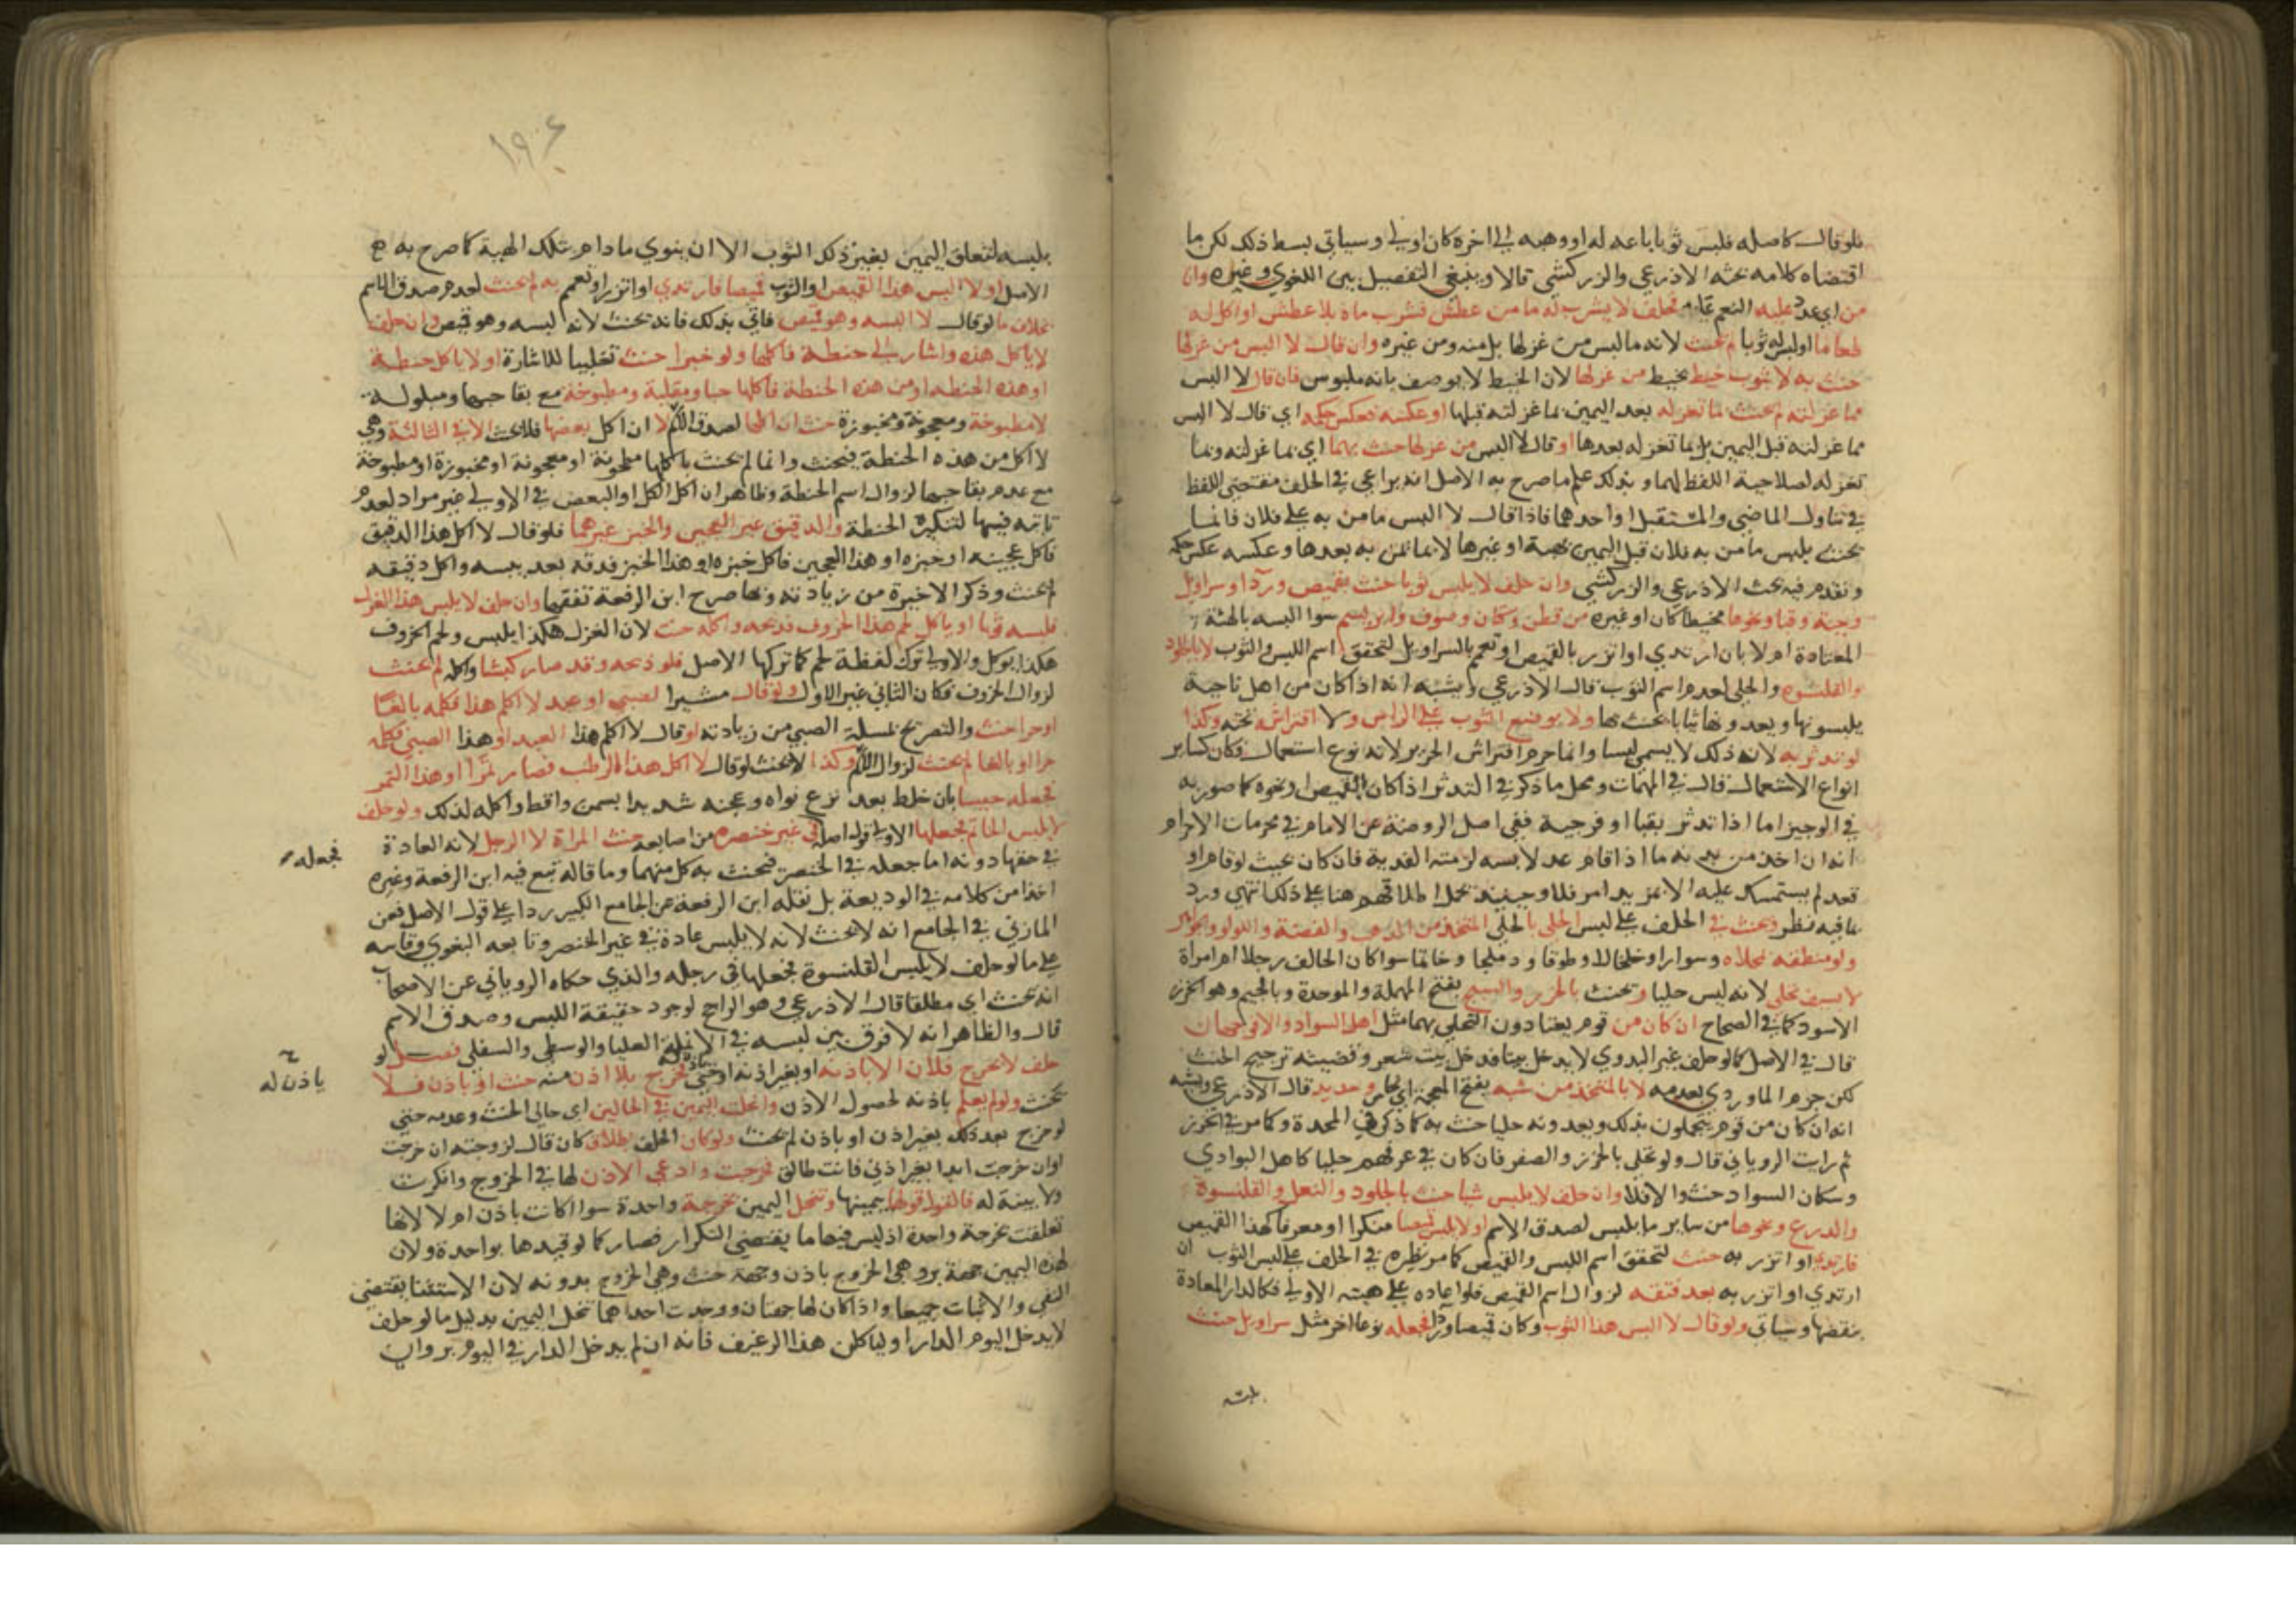 فلو قال كاصله فلبس ثوبا باعه له او وهبه الى اخره كان اولى وسياتي بسط ذلك لكن ما
اقتضاه كلامه بحثه الاذرعي والزركشي قالا وينبغي التفصيل بين اللغوي وغيره وان
من اي عدد عليه النعم فحلف لا يشرب له ما من عطش فشرب ماه بلا عطش او اكل له
طعاما او لبس له ثوبا لم يحنث لانه ما لبس من غزلها بل منه ومن غيره وان قال لا البس من غزلها
حنث به لا بثوب خيط بخيط من غزلها لان الخيط لا يوصف بانه ملبوس فان قال لا البس
مما غزلته لم يحنث بما تغزله بعد اليمين بما غزلته قبلها او عكسه فعكس حكمه اي قال لا البس
مما غزلته قبل اليمين بل بما تغزله بعدها او قال لا البس من غزلها حنث بهما اي بما غزلته وبما
تغزله لصلاحية اللفظ لهما وبذلك علم ما صرح به الاصل انه يراعي في الحلف مقتضى اللفظ
في تناول الماضي والمستقبل او احدهما فاذا قال لا البس ما من به على فلان فانما
يحنث بلبس ما من به فلان قبل اليمين بهبة او غيرها لا بما يمن به بعدها وعكسه عكس حكمه
وتقدم فيه بحث الاذرعي والزركشي وان حلف لا يلبس ثوبا حنث بقميص وردا وسراويل
وجبة وقبا ونحوها مخيطا كان او غيره من قطن وكتان وصوف وابريسم سوا البسه بالهيئة
المعتادة ام لا بان ارتدي او اتزر بالقميص او تعمم بالسراويل لتحقق اسم اللبس والثوب لا بالجلود
والقلنسوة والحلي لعدم اسم الثوب قال الاذرعي ويشبه انه اذا كان من اهل ناحية
يلبسونها ويعدونها ثيابا يحنث بها ولا بوضع الثوب على الراس ولا افتراش تحته وكذا
لو تدثر به لان ذلك لا يسمى لبسا وانما حرم افتراش الحرير لانه نوع استعمال فكان كساير
انواع الاستعمال قال في المهمات ومحل ما ذكر في التدثر اذا كان بالقميص او نحوه كما صور به
في الوجيز اما اذا تدثر بقبا او فرجية ففي اصل الروضة عن الامام في محرمات الاحرام
انه ان اخذ من بدنه ما اذا قام عد لابسه لزمته الفدية فان كان بحيث لو قام او
قعد لم يستمسك عليه الا بمزيد امر فلا وحينئذ يحمل اطلاقهم هنا على ذلك انتهي ورد
بما فيه نظر ويحنث في الحلف على لبس الحلي بالحلي المتخذ من الذهب والفضة واللولو والجواهر
ولو منطقة محلاه وسوارا وخلخالا وطوقا ودملجا وخاتما سوا كان الحالف رجلا ام امراة
لا بسيف محلي لانه ليس حليا ويحنث بالخرز والسبج بفتح المهملة والموحدة وبالجيم وهو الخرز
الاسود كما في الصحاح ان كان من قوم يعتادون التحلي بهما مثل اهل السواد والا فوجهان
قال في الاصل كما لو حلف غير البدوي لا يدخل بيتا فدخل بيت شعر وقضيته ترجيح الحنث
لكن جزم الماوردي بعدمه لا بالمتخذ من شبه بفتح المعجمة اي نحاس وحديد قال الاذرعي ويشبه
انه ان كان من قوم يتجملون بذلك ويعدونه حليا حنث به كما ذكر في المخدة وكما مر في الخرز
ثم رايت الروياني قال ولو تحلى بالخرز والصفر فان كان في عرفهم حليا كاهل البوادي
وسكان السواد حنث والا فلا وان حلف لا يلبس شيا حنث بالجلود والنعل والقلنسوة
والدرع ونحوها من ساير ما يلبس لصدق الاسم او لا يلبس قميصا منكرا او معرفا كهذا القميص
فارتدي او اتزر به حنث لتحقق اسم اللبس والقميص كما مر نظيره في الحلف على لبس الثوب لا ان
ارتدي او اتزر به بعد فتقه لزوال اسم القميص فلو اعاده على هيئته الاولى فكالدار المعادة
بنقضها وسياتي ولو قال لا البس هذا الثوب وكان قميصا او ردا فجعله نوعا اخر مثل سراويل حنث
بلبسه
١٩٠٤
بلبسه لتعلق اليمين بغير ذلك الثوب الا ان ينوي ما دام بتلك الهيئة كما صرح به
الاصل او لا البس هذا القميص او الثوب قميصا فارتدي او اتزر او تعمم به لم يحنث لعدم صدق الاسم
بخلاف ما لو قال لا البسه وهو قميص فاتي بذلك فانه يحنث لانه لبسه وهو قميص وان حلف
لا ياكل هذه واشار الى حنطة فاكلها ولو خبزا حنث تغليبا للاشارة او لا ياكل حنطة
او هذه الحنطة او من هذه الحنطة فاكلها حبا ومقلية ومطبوخة مع بقا حبها ومبلولة
لا مطبوخة ومعجونة ومخبوزة حنث ان اكلها لصدق الاسم لا ان اكل بعضها فلا يحنث الا في الثالثة وهي
لا اكل من هذه الحنطة فيحنث وانما لم يحنث باكلها مطحونة او معجونة او مخبوزة او مطبوخة
مع عدم بقا حبها لزوال اسم الحنطة وظاهر ان اكل الكل او البعض في الاولى غير مراد لعدم
تاتيه فيها لتنكير الحنطة والدقيق غير العجين والخبز غيرهما فلو قال لا اكل هذا الدقيق
فاكل عجينه او خبزه او هذا العجين فاكل خبزه او هذا الخبز فدقه بعد يبسه واكل دقيقه
لم يحنث وذكر الاخيرة من زيادته وبها صرح ابن الرفعة تفقها وان حلف لا يلبس هذا الغزل
فلبسه ثوبا او ياكل لحم هذا الخروف فذبحه واكله حنث لان الغزل هكذا يلبس ولحم الخروف
هكذا يوكل والاولى ترك لفظة لحم كما تركها الاصل فلو ذبحه وقد صار كبشا واكله لم يحنث
لزوال الخروف فكان الثاني غير الاول ولو قال مشيرا لصبي او عبد لا اكلم هذا فكلمه بالغا
او حرا حنث والتصريح بمسئلة الصبي من زيادته او قال لا اكلم هذا العبد او هذا الصبي فكلمه
حرا او بالغا لم يحنث لزوال الاسم وكذا لا يحنث لو قال لا اكل هذا الرطب فصار تمرا او هذا التمر
فجعله حيسا بان خلط بعد نزع نواه وعجنه شديدا بسمن واقط واكله لذلك ولو حلف
لا يلبس الخاتم فجعلها الاولى قول اصله في غير خنصره من اصابعه حنث المراة لا الرجل لانه العادة
فجعله
في حقها دونه اما جعله في الخنصر فيحنث به كل منهما وما قاله تبع فيه ابن الرفعة وغيره
اخذا من كلامه في الوديعة بل نقله ابن الرفعة عن الجامع الكبير ردا على قول الاصل فعن
المازني في الجامع انه لا يحنث لانه لا يلبس عادة في غير الخنصر وتابعه البغوي وقاسه
على ما لو حلف لا يلبس القلنسوة فجعلها في رجله والذي حكاه الروياني عن الاصحاب
انه يحنث اي مطلقا قال الاذرعي وهو الراجح لوجود حقيقة اللبس وصدق الاسم
قال والظاهر انه لا فرق بين لبسه في الانملة العليا والوسطى والسفلى فصل لو
حلف لا تخرج فلان الا باذنه او بغير اذنه او حتى ياذن له فخرج بلا اذن منه حنث او باذن فلا
ياذن له
يحنث ولو لم يعلم باذنه لحصول الاذن وانحلت اليمين في الحالين اي حالي الحنث وعدمه حتى
لو خرج بعد ذلك بغير اذن او باذن لم يحنث ولو كان الحلف بطلاق كان قال لزوجته ان خرجت
او ان خرجت ابدا بغير اذني فانت طالق فخرجت وادعي الاذن لها في الخروج وانكرت
ولا بينة له فالقول قولها بيمينها وتنحل اليمين بخرجة واحدة سوا اكانت باذن ام لا لانها
تعلقت بخرجة واحدة اذ ليس فيها ما يقتضي التكرار فصار كما لو قيدها بواحدة ولان
لهذه اليمين جهة بر وهي الخروج باذن وجهة حنث وهي الخروج بدونه لان الاستثنا يقتضي
النفي والاثبات جميعا واذا كان لها جهتان ووجدت احداهما تنحل اليمين بدليل ما لو حلف
لا يدخل اليوم الدار او لياكلن هذا الرغيف فانه ان لم يدخل الدار في اليوم بر وان